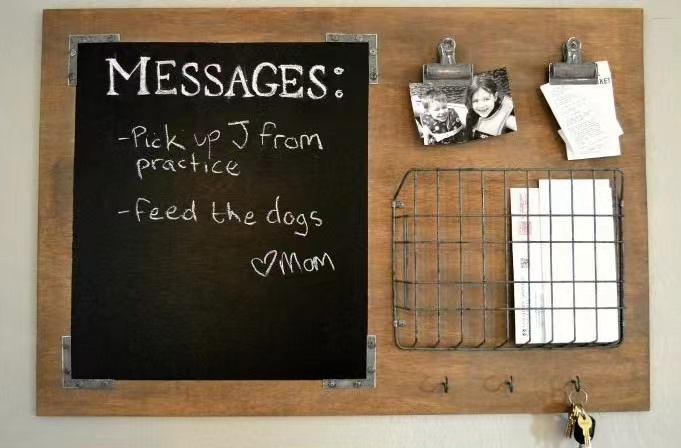 MESSAGES:
-Pick up J from
practice
-feed the dogs
♡Mom